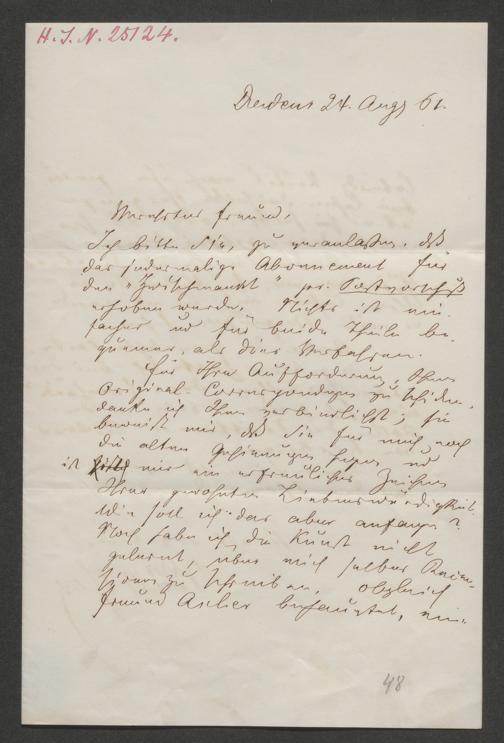 H. I. N. 25124.
Dresden 24. Aug 61.
Verehrter Freund,
Ich bitte Sie, zu veranlassen, daß
das jedesmalige Abonnement für
den "Zwischenakt" pr. Postvorschuß
erhoben werde. Nichts ist ein-
facher und für beide Theile be-
quemer, als dies Verfahren.
Für Ihre Aufforderung, Ihnen
Original-Correspondenzen zu schicken,
danke ich Ihnen verbindlichst; sie
beweist mir, daß Sie für mich noch
die alten Gesinnungen hegen und
ist mir ein erfreuliches Zeichen
Ihrer gewohnten Liebenswürdigkeit.
Wie soll ich das aber anfangen?
Noch habe ich die Kunst nicht
gelernt, über mich selber Recen-
sionen zu schreiben, obgleich
Freund Ascher behauptet, ein-
48